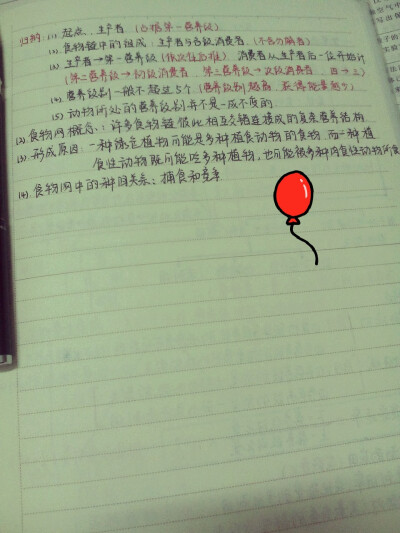 归纳: (1) 起点: 生产者 (占据第一营养级)
(2) 食物链中的组成: 生产者与各级消费者 (不含分解者)
(3) 生产者→第一营养级 (依次往后推) 消费者从生产者后一位开始计
(第二营养级→初级消费者, 第三营养级→次级消费者
(4) 营养级别一般不超过5个 (营养级别越高, 获得能量越少)
(5) 动物所处的营养级别并不是一成不变的
(2) 食物网概念: 许多食物链彼此相互交错连接成的复杂营养结构
(3) 形成原因: 一种绿色植物可能是多种植食动物的食物 而一种植
食性动物既可能吃多种植物, 也可能被多种肉食性动物所食
(4) 食物网中的种间关系: 捕食和竞争